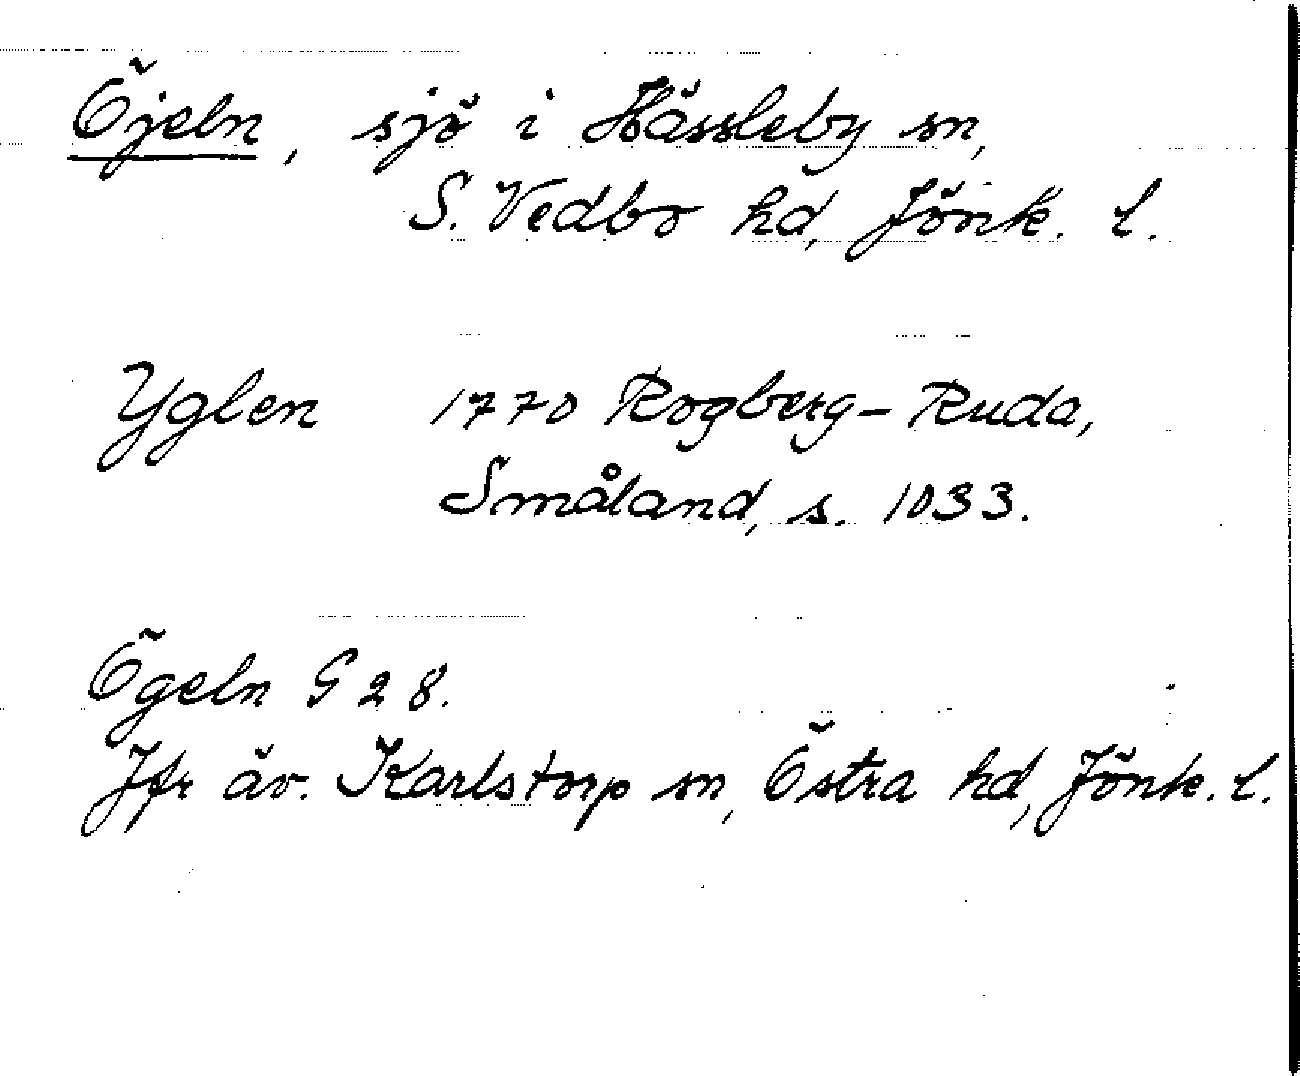 Öjeln, sjö i Hässleby sn,
S. Vedbo hd, Jönk. l.
Yglen 1770 Rogberg-Ruda,
Småland, s. 1033.
Ögeln G 28.
Jfr äv. Karlstorp sn, Östra hd, Jönk. l.